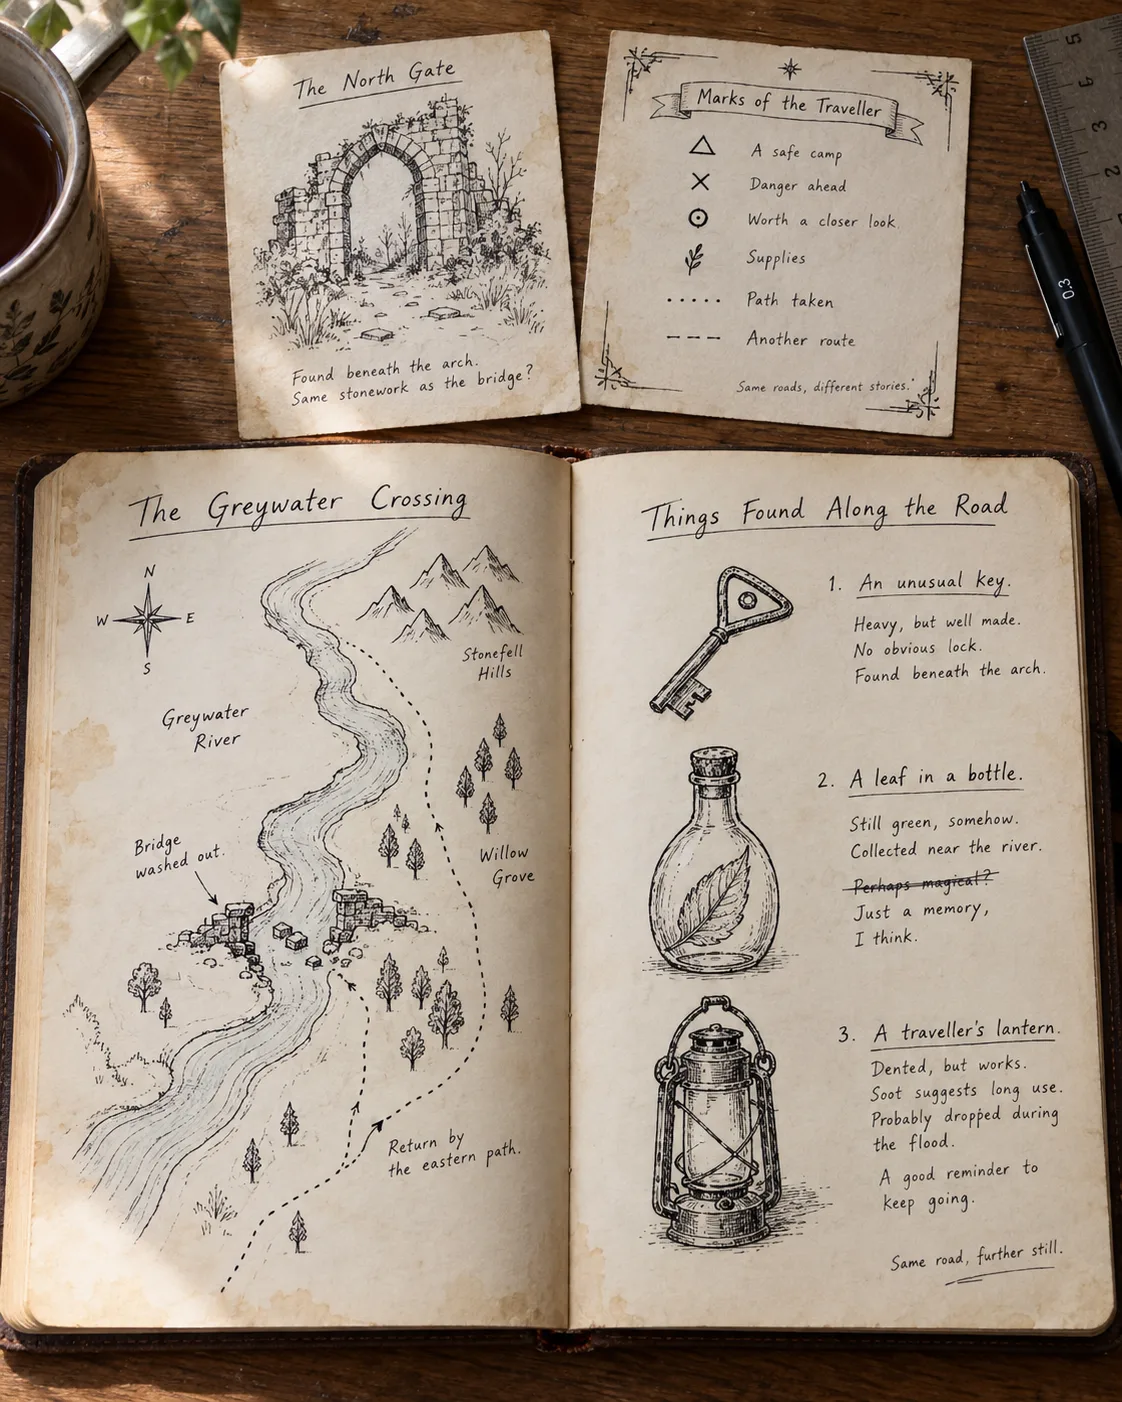 The North Gate
Found beneath the arch.
Same stonework as the bridge?
Marks of the Traveller
A safe camp
Danger ahead
Worth a closer look
Supplies
Path taken
Another route
Same roads, different stories.
5
3
2
0.3
The Greywater Crossing
N
W E
S
Stonefell
Hills
Greywater
River
Bridge
washed out.
Willow
Grove
Return by
the eastern path.
Things Found Along the Road
1. An unusual key.
Heavy, but well made.
No obvious lock.
Found beneath the arch.
2. A leaf in a bottle.
Still green, somehow.
Collected near the river.
Perhaps magical?
Just a memory,
I think.
3. A traveller's lantern.
Dented, but works.
Soot suggests long use.
Probably dropped during
the flood.
A good reminder to
keep going.
Same road, further still.